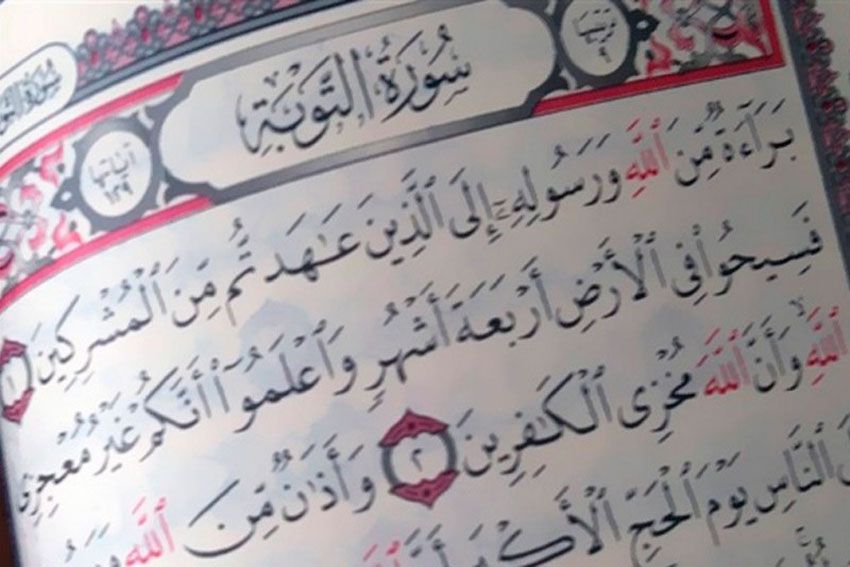 سُورَةُ التَّوْبَةِ
ترتيبها ٩
آياتها ١٢٩
بَرَآءَةٌ مِّنَ ٱللَّهِ وَرَسُولِهِۦٓ إِلَى ٱلَّذِينَ عَٰهَدتُّم مِّنَ ٱلْمُشْرِكِينَ ١
فَسِيحُوا۟ فِى ٱلْأَرْضِ أَرْبَعَةَ أَشْهُرٍ وَٱعْلَمُوٓا۟ أَنَّكُمْ غَيْرُ مُعْجِزِى
ٱللَّهِ ۙ وَأَنَّ ٱللَّهَ مُخْزِى ٱلْكَٰفِرِينَ ٢ وَأَذَٰنٌ مِّنَ ٱللَّهِ
ٱلنَّاسِ يَوْمَ ٱلْحَجِّ ٱلْأَكْبَرِ